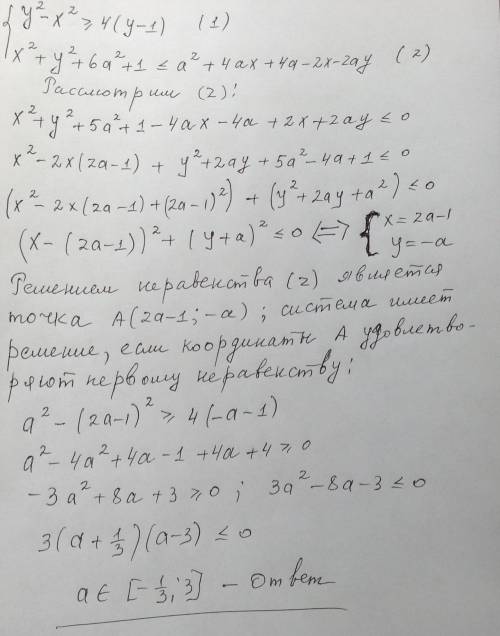 { y² - x² ⩾ 4(y-1) (1)
x² + y² + 6a² + 1 ≤ a² + 4ax + 4a - 2x - 2ay (2)
Рассмотрим (2):
x² + y² + 5a² + 1 - 4ax - 4a + 2x + 2ay ≤ 0
x² - 2x(2a-1) + y² + 2ay + 5a² - 4a + 1 ≤ 0
(x² - 2x(2a-1) + (2a-1)²) + (y² + 2ay + a²) ≤ 0
(x - (2a-1))² + (y+a)² ≤ 0 <=> { x = 2a-1
y = -a
Решением неравенства (2) является
точка A(2a-1; -a); система имеет
решение, если координаты A удовлетво-
ряют первому неравенству:
a² - (2a-1)² ⩾ 4(-a-1)
a² - 4a² + 4a - 1 + 4a + 4 ⩾ 0
-3a² + 8a + 3 ⩾ 0 ; 3a² - 8a - 3 ≤ 0
3(a + 1/3)(a-3) ≤ 0
a ∈ [-1/3; 3] - Ответ